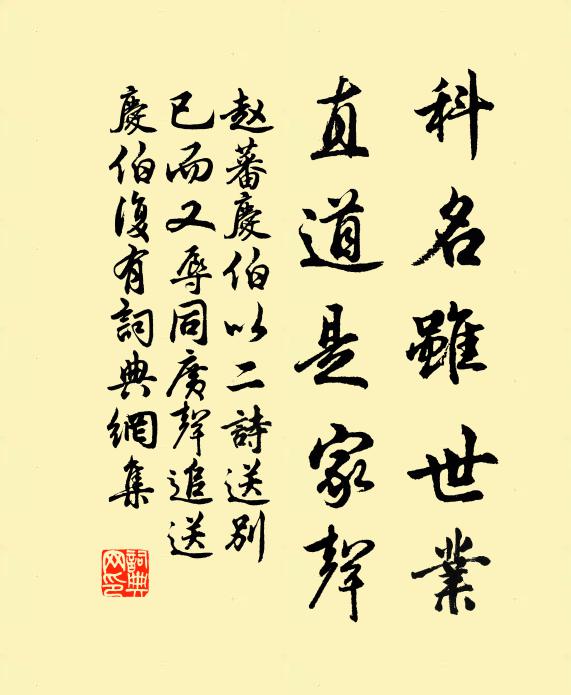 科名雖世業
直道是家聲
赵蕃慶伯以二詩送别
已而又辱同廣聲追送
慶伯復有詞典網集
詞典網印